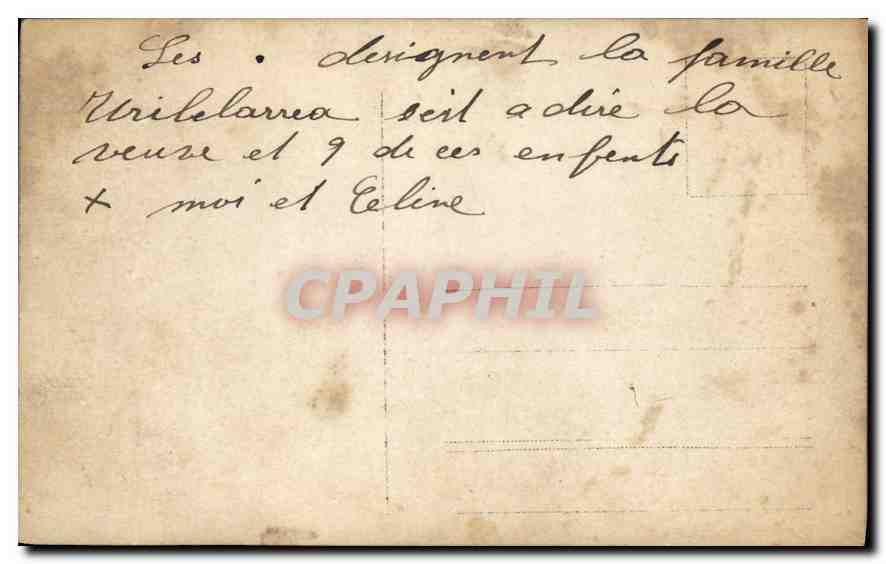 Les . designent la famille
Uribelarrea c'est a dire la
veuve et 9 de ces enfents
+ moi et Celine
CPAPHIL